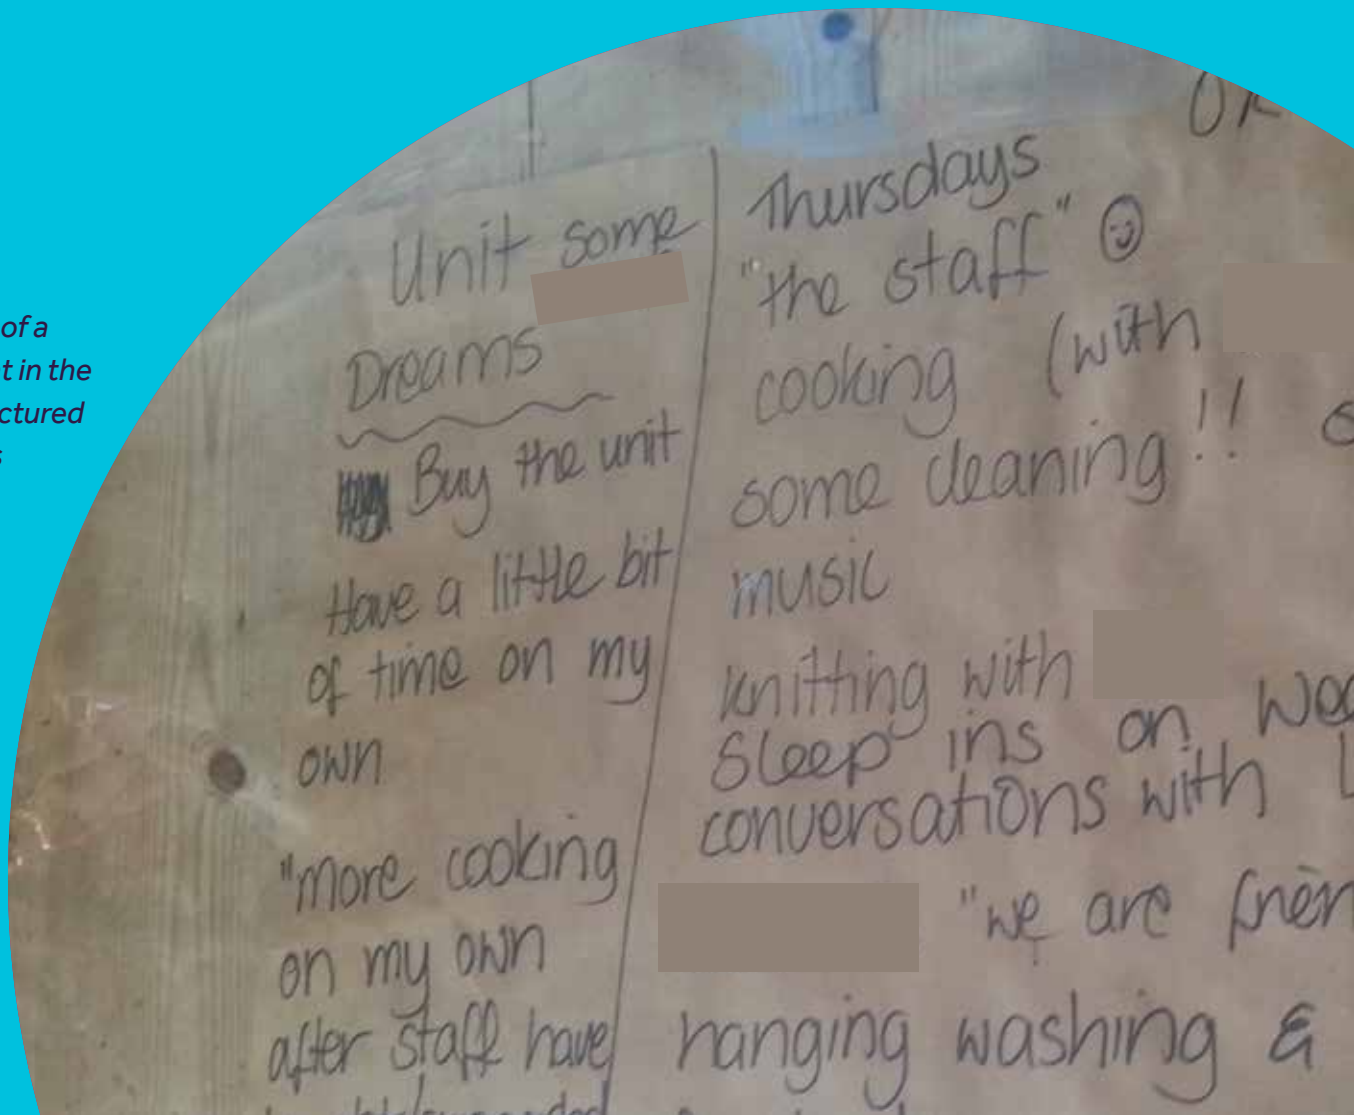 of a
t in the
ctured
s
Unit some
Dreams
Buy the unit
Have a little bit
of time on my
own
"more cooking
on my own
after staff have
Thursdays
"the staff" ☺
cooking (with
some cleaning!!
music
knitting with
Sleep ins on
conversations with
"we are
hanging washing &